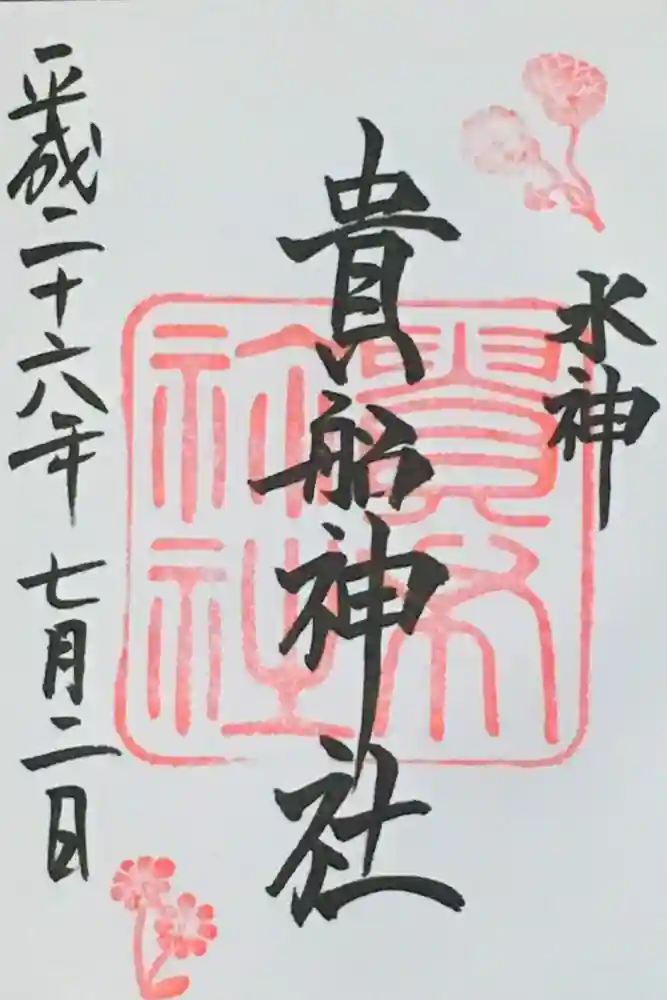 水神
貴船神社
平成二十六年七月二日